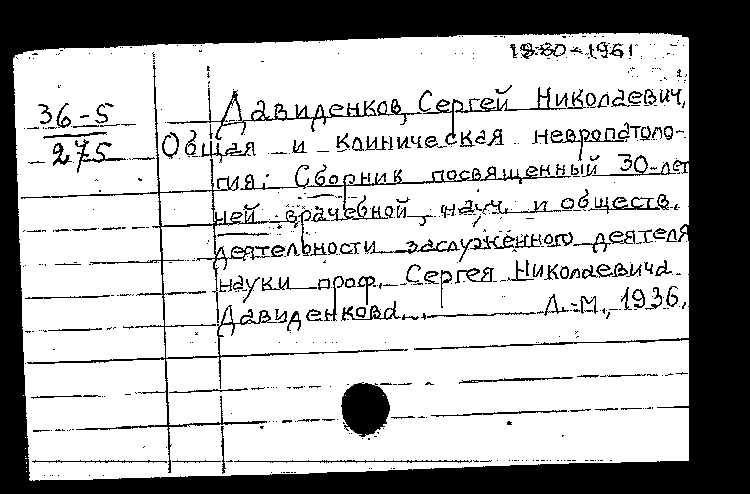 1880-1961
36-5
275
Давиденков, Сергей Николаевич,
Общая и клиническая невропатоло-
гия: Сборник посвященный 30-лет
ней врачебной, науч. и обществ.
деятельности заслуженного деятеля
науки проф. Сергея Николаевича
Давиденкова... Л.-М., 1936.